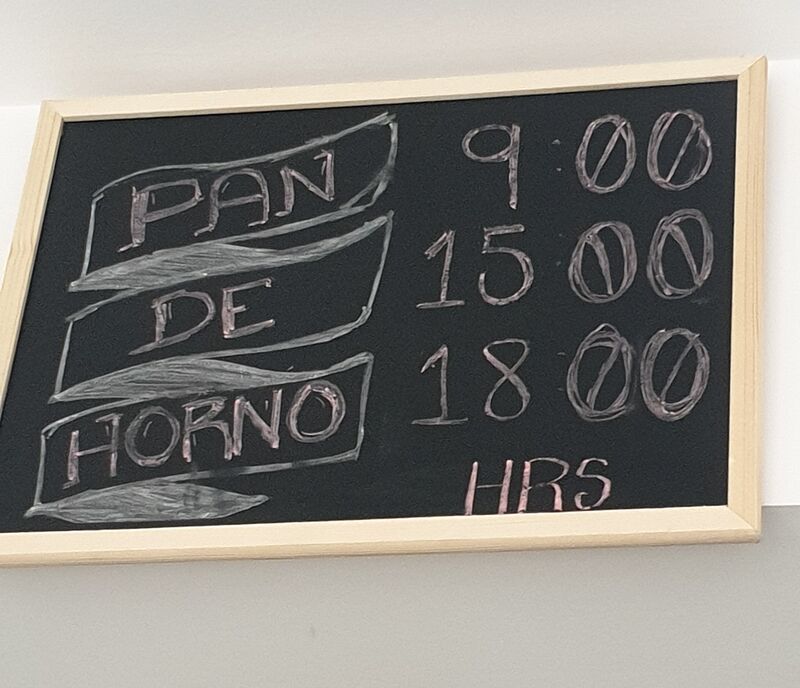 PAN
DE
HORNO
9:00
15:00
18:00
HRS